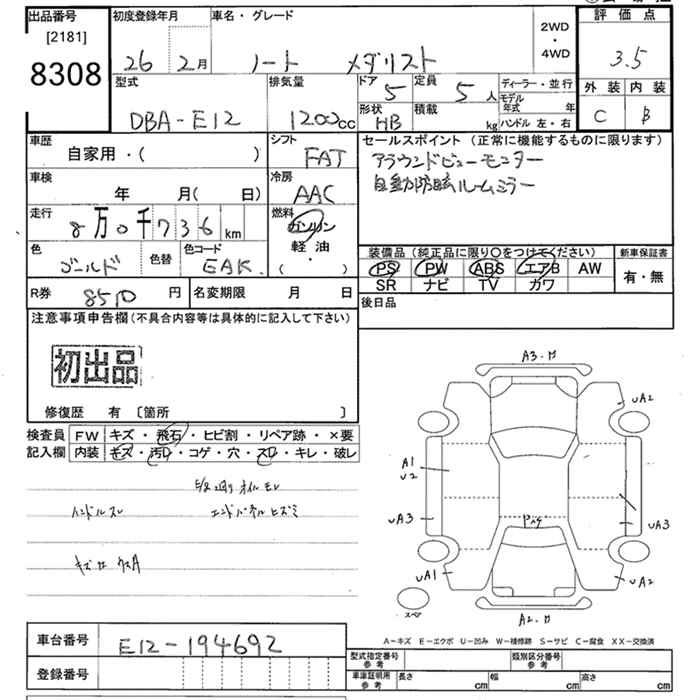 出品番号
[2181]
8308
初度登録年月
26年 2月
車名・グレード
ノート メダリスト
2WD
・
4WD
評価点
3.5
外装 内装
C B
型式
DBA-E12
排気量
1200cc
ドア
5
定員
5人
形状
HB
積載
kg
ディーラー・並行
モデル年式 年
ハンドル 左・右
車歴
自家用・( )
シフト
FAT
セールスポイント(正常に機能するものに限ります)
アラウンドビューモニター
自動防眩ルームミラー
車検
年 月( 日)
冷房
AAC
走行
8万0千736km
燃料
ガソリン
軽油
( ・ )
色
ゴールド
色替
色コード
EAK
装備品(純正品に限り〇をつけてください)
PS PW ABS エアB AW
SR ナビ TV カワ
新車保証書
有・無
R券 8510円
名変期限 月 日
後日品
注意事項申告欄(不具合内容等は具体的に記入して下さい)
初出品
修復歴 有 〔箇所 〕
検査員記入欄
FW キズ・飛石・ヒビ割・リペア跡・×要
内装 キズ・汚レ・コゲ・穴・スレ・キレ・破レ
ハンドルスレ
エンドパネルヒズミ
A3・U
UA2
A1
U2
UA3
UA3
UA1
UA2
A2・U
スペア
A-キズ E-エクボ U-凹み W-補修跡 S-サビ C-腐食 XX-交換済
車台番号
E12-194692
登録番号
型式指定番号
参考
類別区分番号
参考
車庫証明用
参考
長さ cm
幅 cm
高さ cm